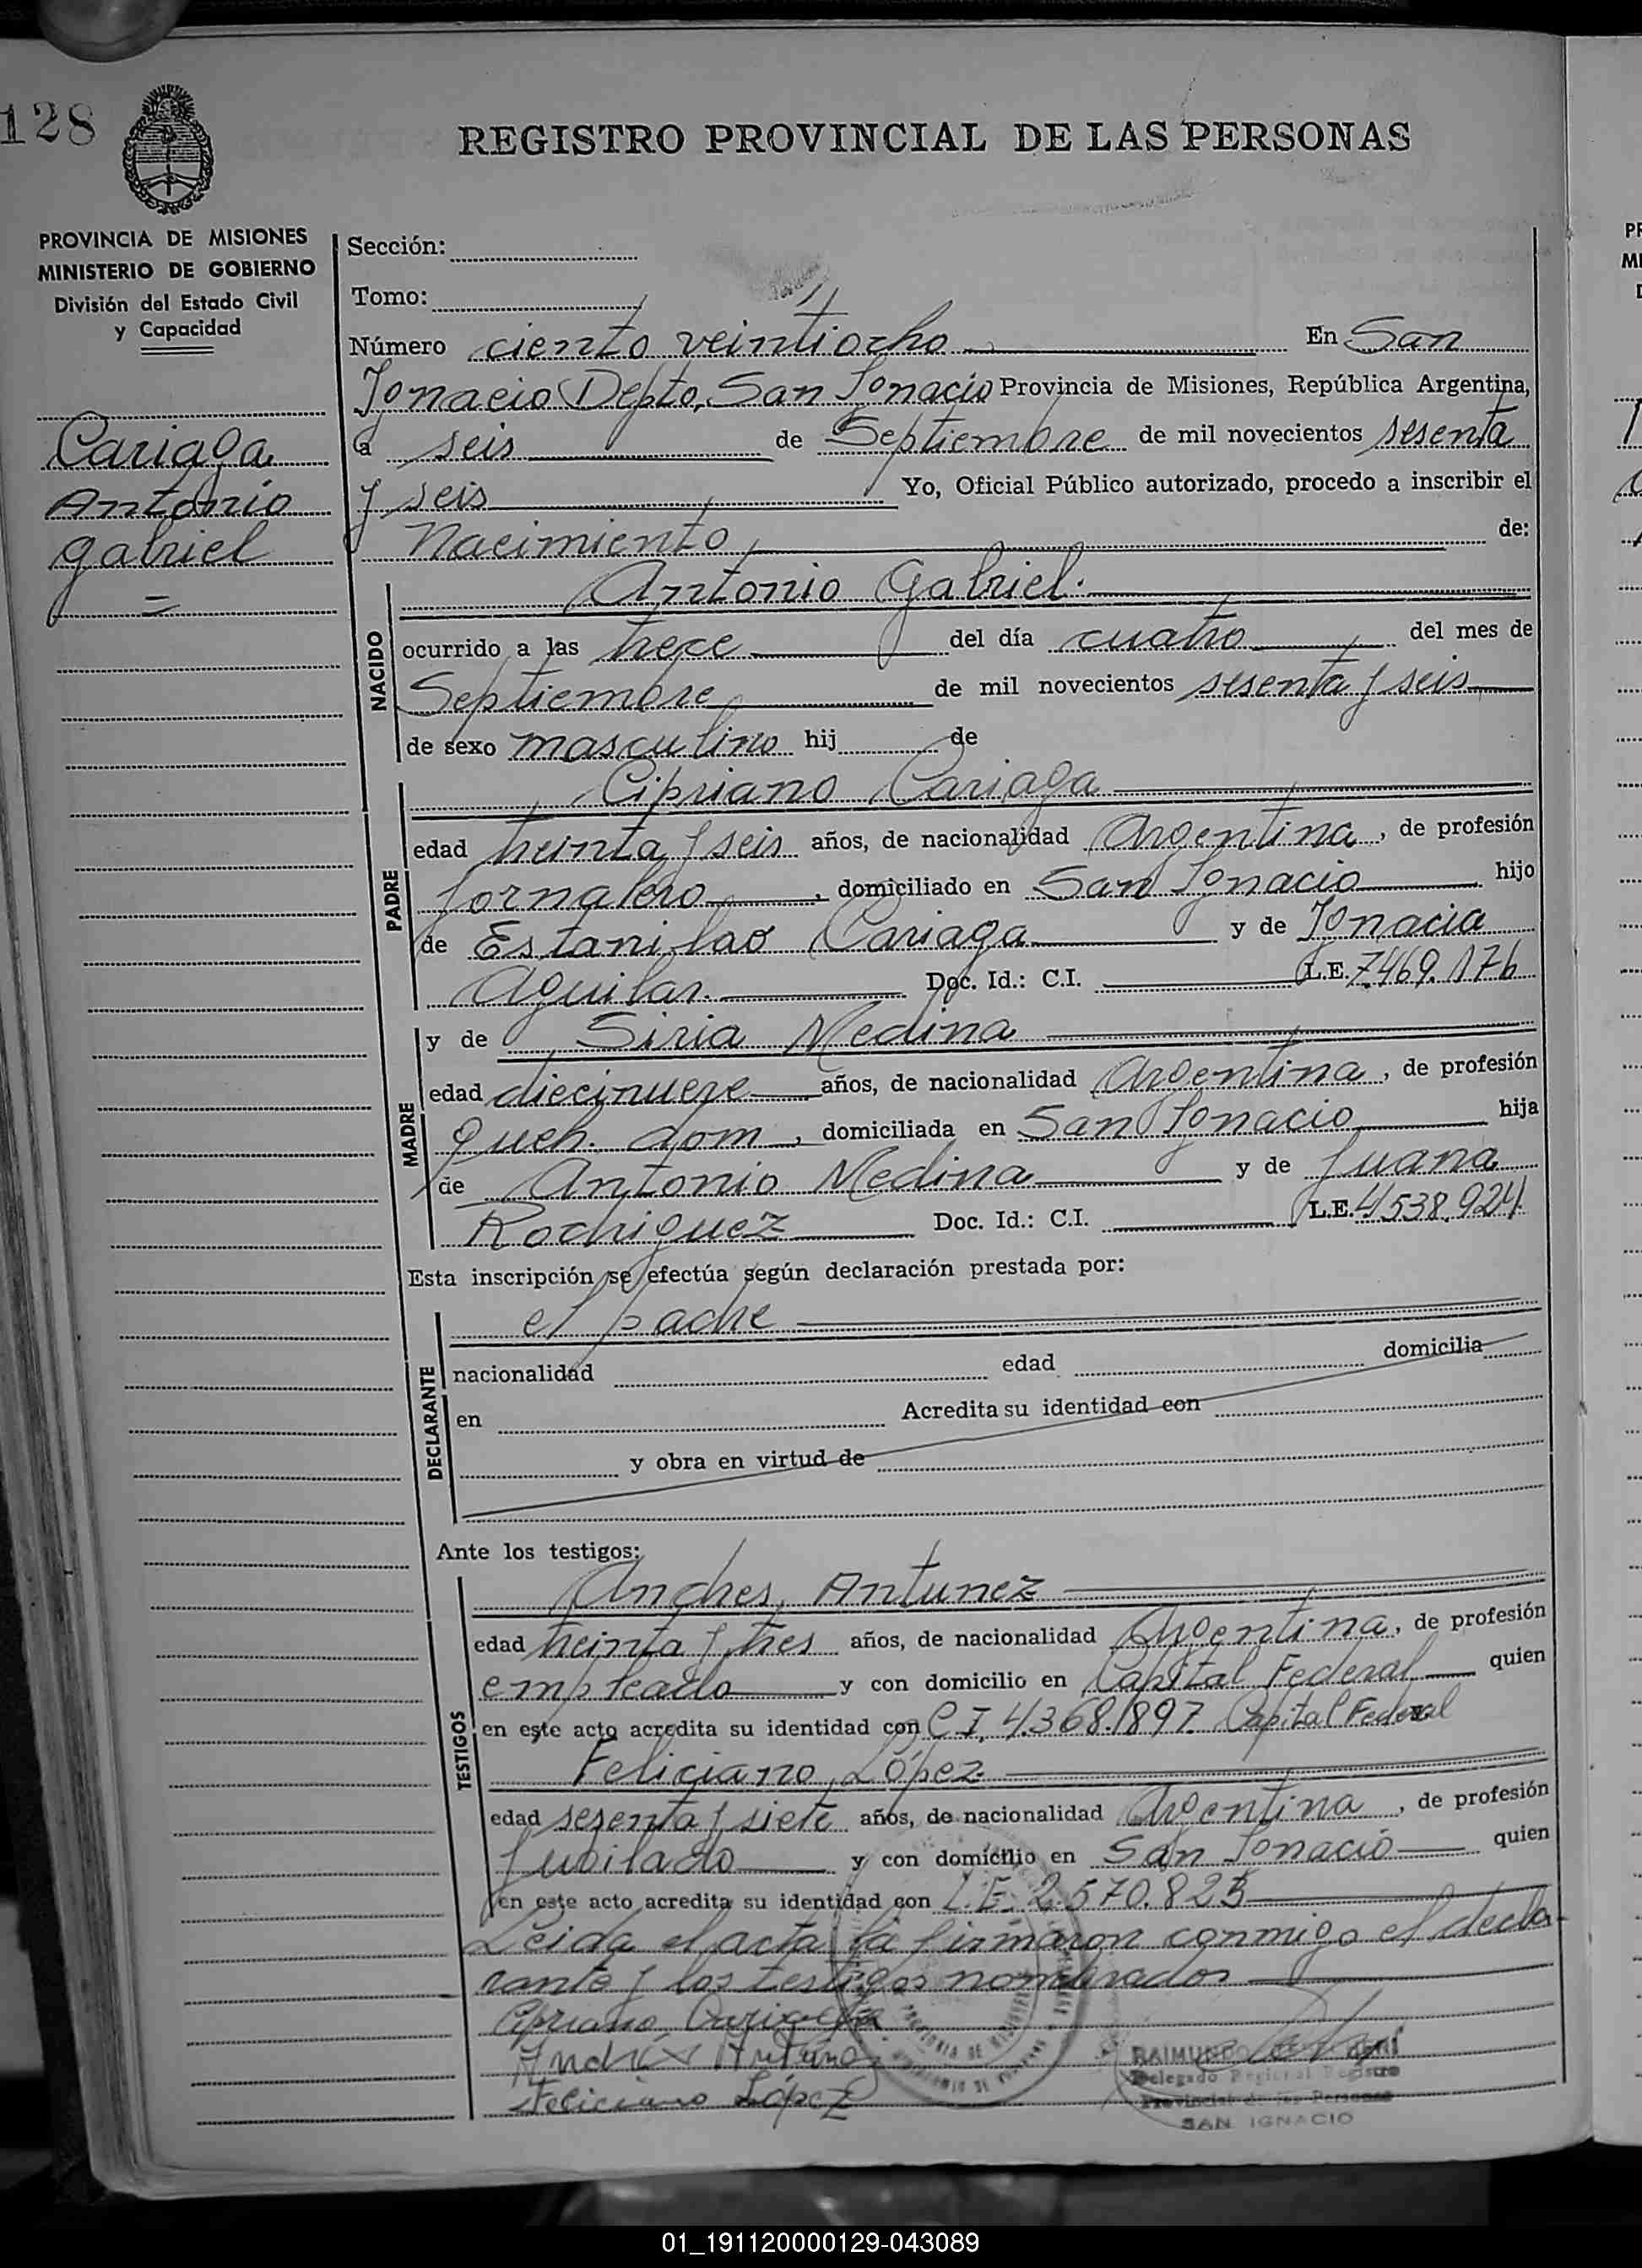 128
REGISTRO PROVINCIAL DE LAS PERSONAS
PROVINCIA DE MISIONES
MINISTERIO DE GOBIERNO
División del Estado Civil
y Capacidad
Cariaga
Antonio
Gabriel
=
Sección:
Tomo:
Número ciento veintiocho En San
Ignacio Depto, San Ignacio Provincia de Misiones, República Argentina,
a seis de Septiembre de mil novecientos sesenta
y seis Yo, Oficial Público autorizado, procedo a inscribir el
Nacimiento de:
NACIDO
Antonio Gabriel.
ocurrido a las trece del día cuatro del mes de
Septiembre de mil novecientos sesenta y seis
de sexo masculino hij de
PADRE
Cipriano Cariaga
edad treinta y seis años, de nacionalidad Argentina, de profesión
Jornalero, domiciliado en San Ignacio hijo
de Estanislao Cariaga y de Ignacia
Aguilar. Doc. Id.: C.I. L.E. 7.469.176
MADRE
y de Siria Medina
edad diecinueve años, de nacionalidad Argentina, de profesión
queh. dom, domiciliada en San Ignacio hija
de Antonio Medina y de Juana
Rodriguez Doc. Id.: C.I. L.E. 4538.924.
Esta inscripción se efectúa según declaración prestada por:
DECLARANTE
el padre
nacionalidad edad domicilia
en Acredita su identidad con
y obra en virtud de
Ante los testigos:
TESTIGOS
Andres Antunez
edad treinta y tres años, de nacionalidad Argentina, de profesión
empleado y con domicilio en Capital Federal quien
en este acto acredita su identidad con C I, 4.368.897 Capital Federal
Feliciano López.
edad sesenta y siete años, de nacionalidad Argentina, de profesión
Jubilado y con domicilio en San Ignacio quien
en este acto acredita su identidad con L.E. 2.570.825
Leida el acta la firmaron conmigo el decla-
rante y los testigos nombrados
Cipriano Cariaga
Andrés Antunez
Feliciano López
RAIMUNDO
Delegado Regional Registro
Provincial de las Personas
SAN IGNACIO
01_191120000129-043089